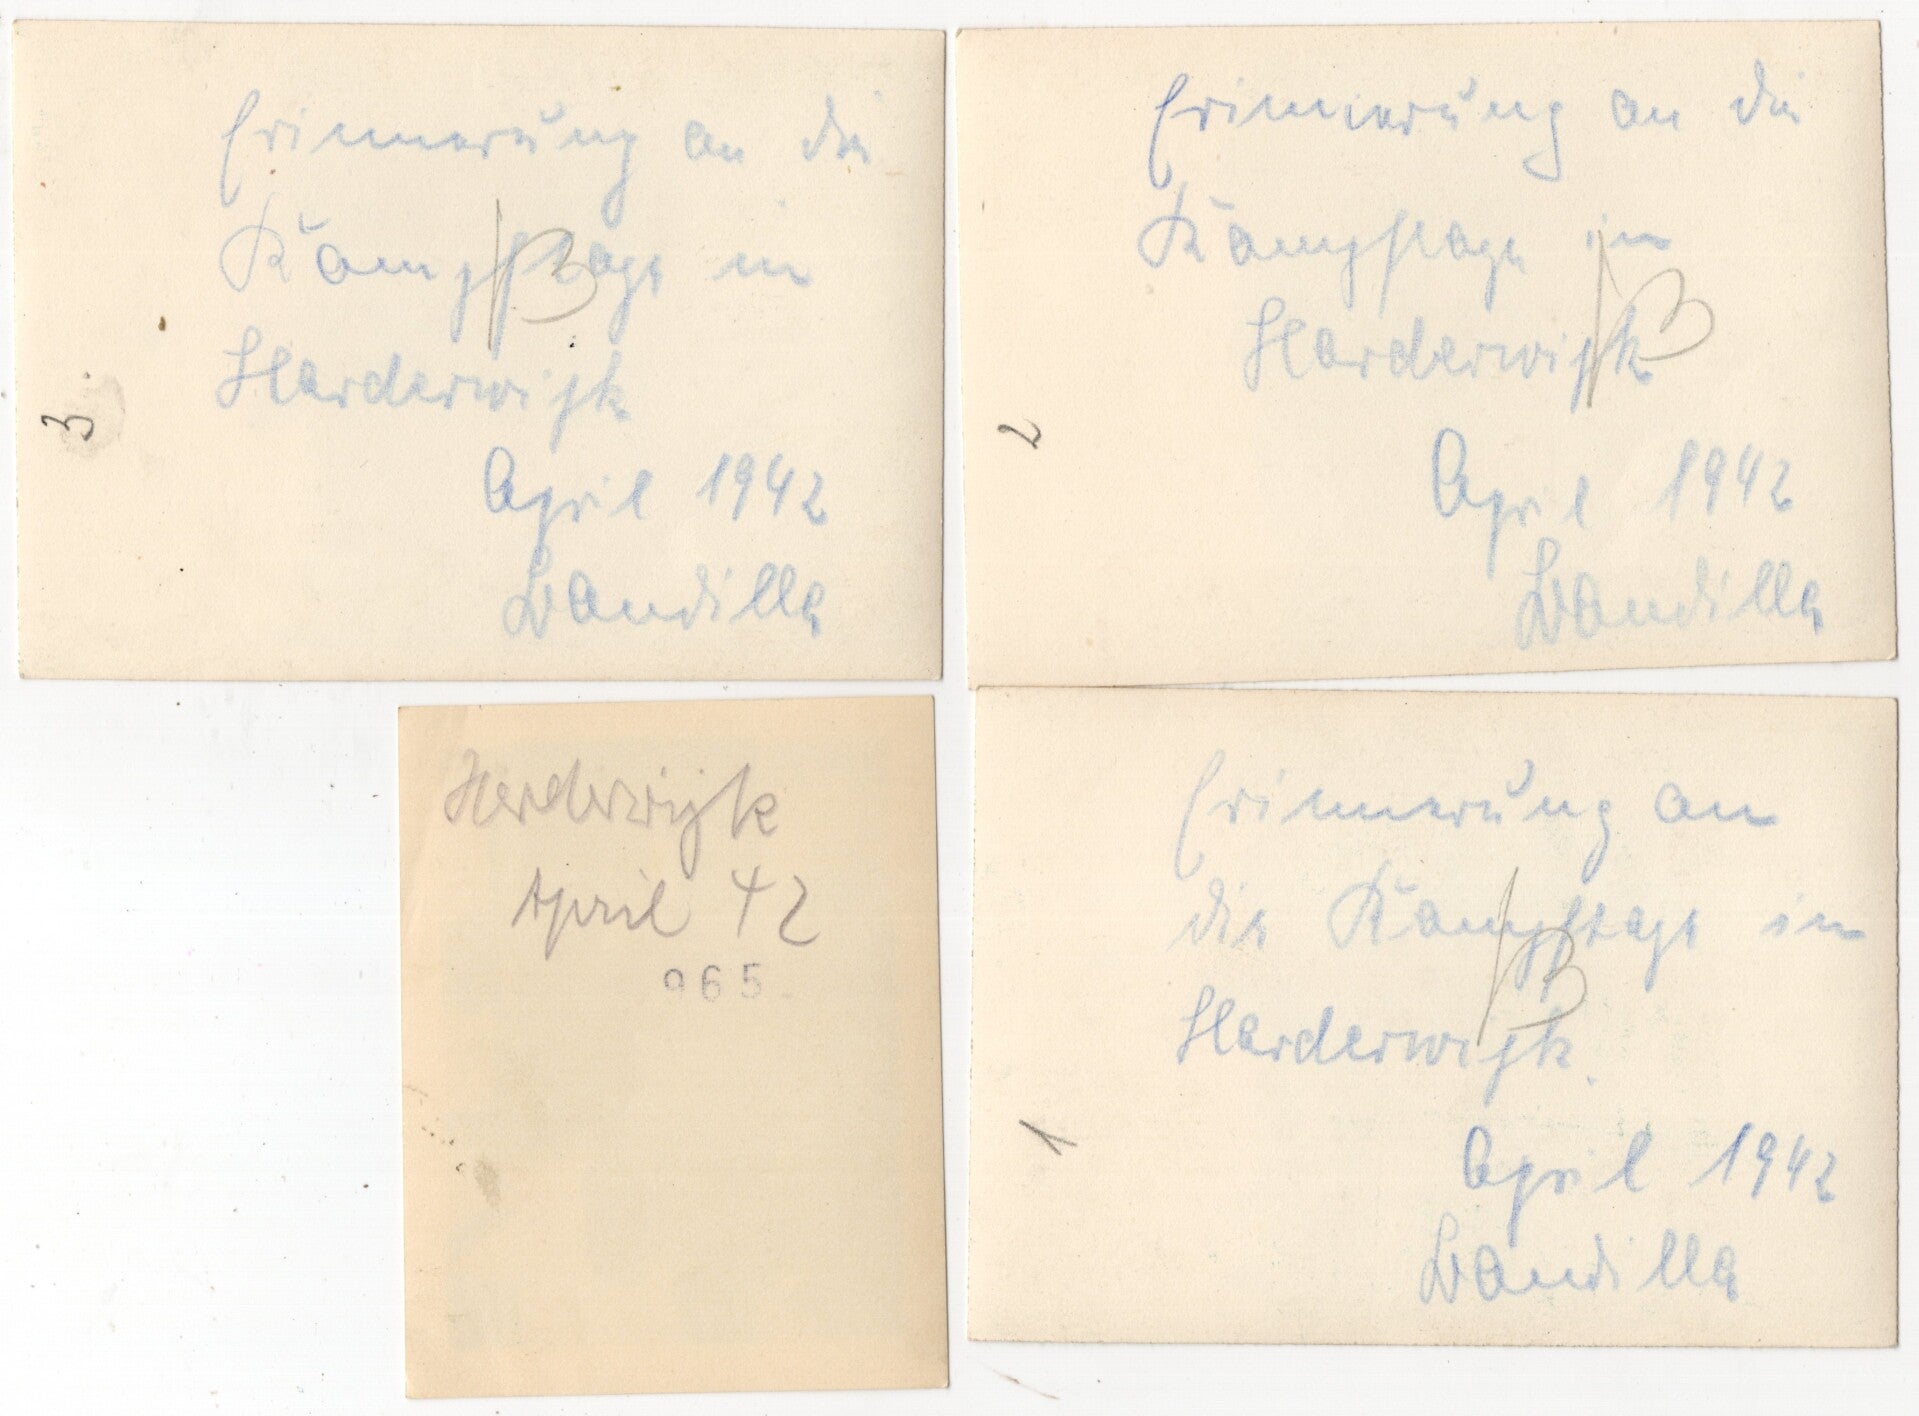 Erinnerung an die
Kampftage in
Harderwijk
April 1942
Wandille
3
Erinnerung an die
Kampftage in
Harderwijk
April 1942
Wandille
2
Harderwijk
April 42
965
Erinnerung an
die Kampftage in
Harderwijk.
April 1942
Wandille
1